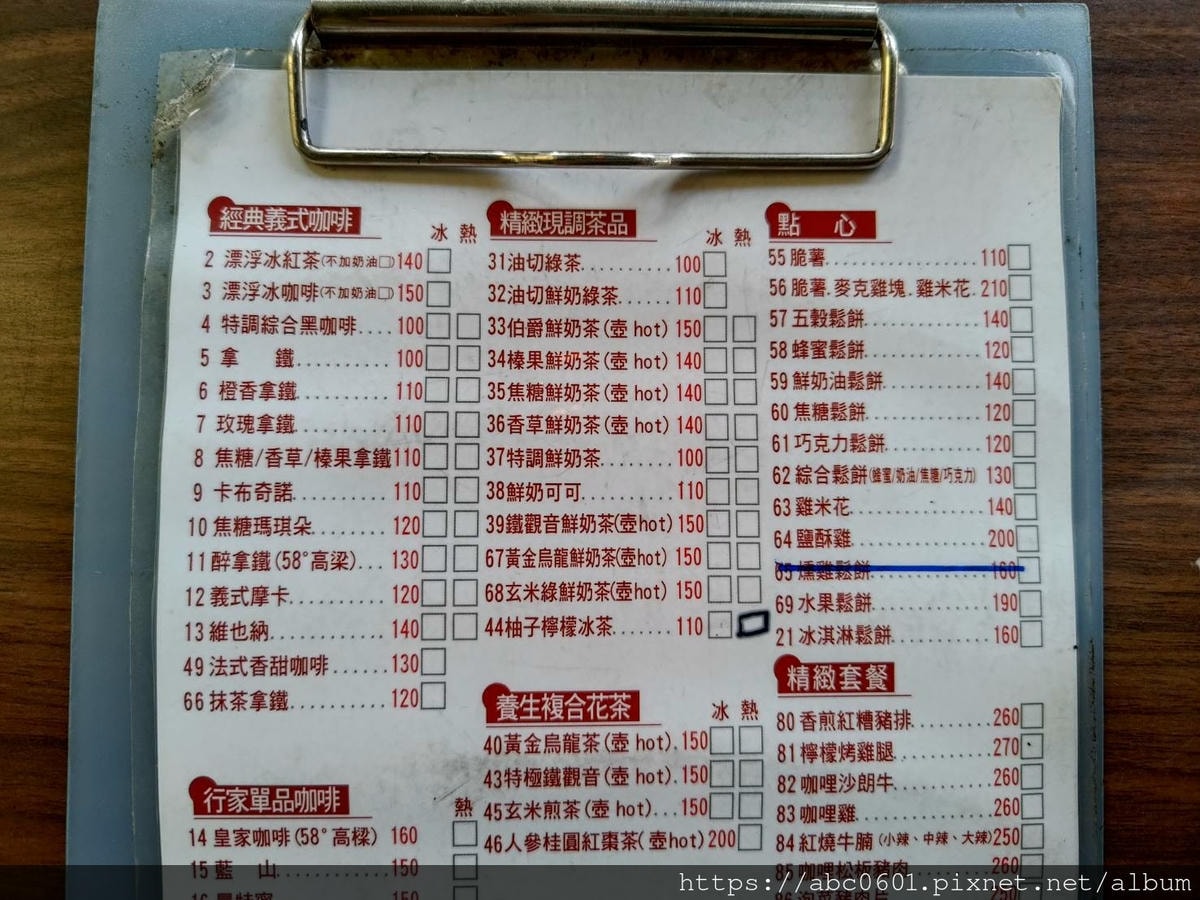 經典義式咖啡
冰 熱
2 漂浮冰紅茶(不加奶油□)140
3 漂浮冰咖啡(不加奶油□)150
4 特調綜合黑咖啡....100
5 拿 鐵..........100
6 橙香拿鐵..........110
7 玫瑰拿鐵..........110
8 焦糖/香草/榛果拿鐵110
9 卡布奇諾..........110
10 焦糖瑪琪朵........120
11 醉拿鐵(58°高梁)...130
12 義式摩卡..........120
13 維也納............140
49 法式香甜咖啡......130
66 抹茶拿鐵..........120
行家單品咖啡
熱
14 皇家咖啡(58°高樑) 160
15 藍 山..........150
精緻現調茶品
冰 熱
31油切綠茶..........100
32油切鮮奶綠茶......110
33伯爵鮮奶茶(壺 hot) 150
34榛果鮮奶茶(壺 hot) 140
35焦糖鮮奶茶(壺 hot) 140
36香草鮮奶茶(壺 hot) 140
37特調鮮奶茶........100
38鮮奶可可..........110
39鐵觀音鮮奶茶(壺hot) 150
67黃金烏龍鮮奶茶(壺hot) 150
68玄米綠鮮奶茶(壺hot) 150
44柚子檸檬冰茶.......110
養生複合花茶
冰 熱
40黃金烏龍茶(壺 hot).150
43特極鐵觀音(壺 hot).150
45玄米煎茶(壺 hot)...150
46人參桂圓紅棗茶(壺hot)200
點 心
55 脆薯..................110
56 脆薯.麥克雞塊.雞米花.210
57 五穀鬆餅..............140
58 蜂蜜鬆餅..............120
59 鮮奶油鬆餅............140
60 焦糖鬆餅..............120
61 巧克力鬆餅............120
62 綜合鬆餅(蜂蜜/奶油/焦糖/巧克力) 130
63 雞米花................140
64 鹽酥雞................200
65 燻雞鬆餅..............160
69 水果鬆餅..............190
21 冰淇淋鬆餅............160
精緻套餐
80 香煎紅糟豬排..........260
81 檸檬烤雞腿............270
82 咖哩沙朗牛............260
83 咖哩雞................260
84 紅燒牛腩(小辣、中辣、大辣)250
85 咖哩松板豬肉..........260
https://abc0601.pixnet.net/album